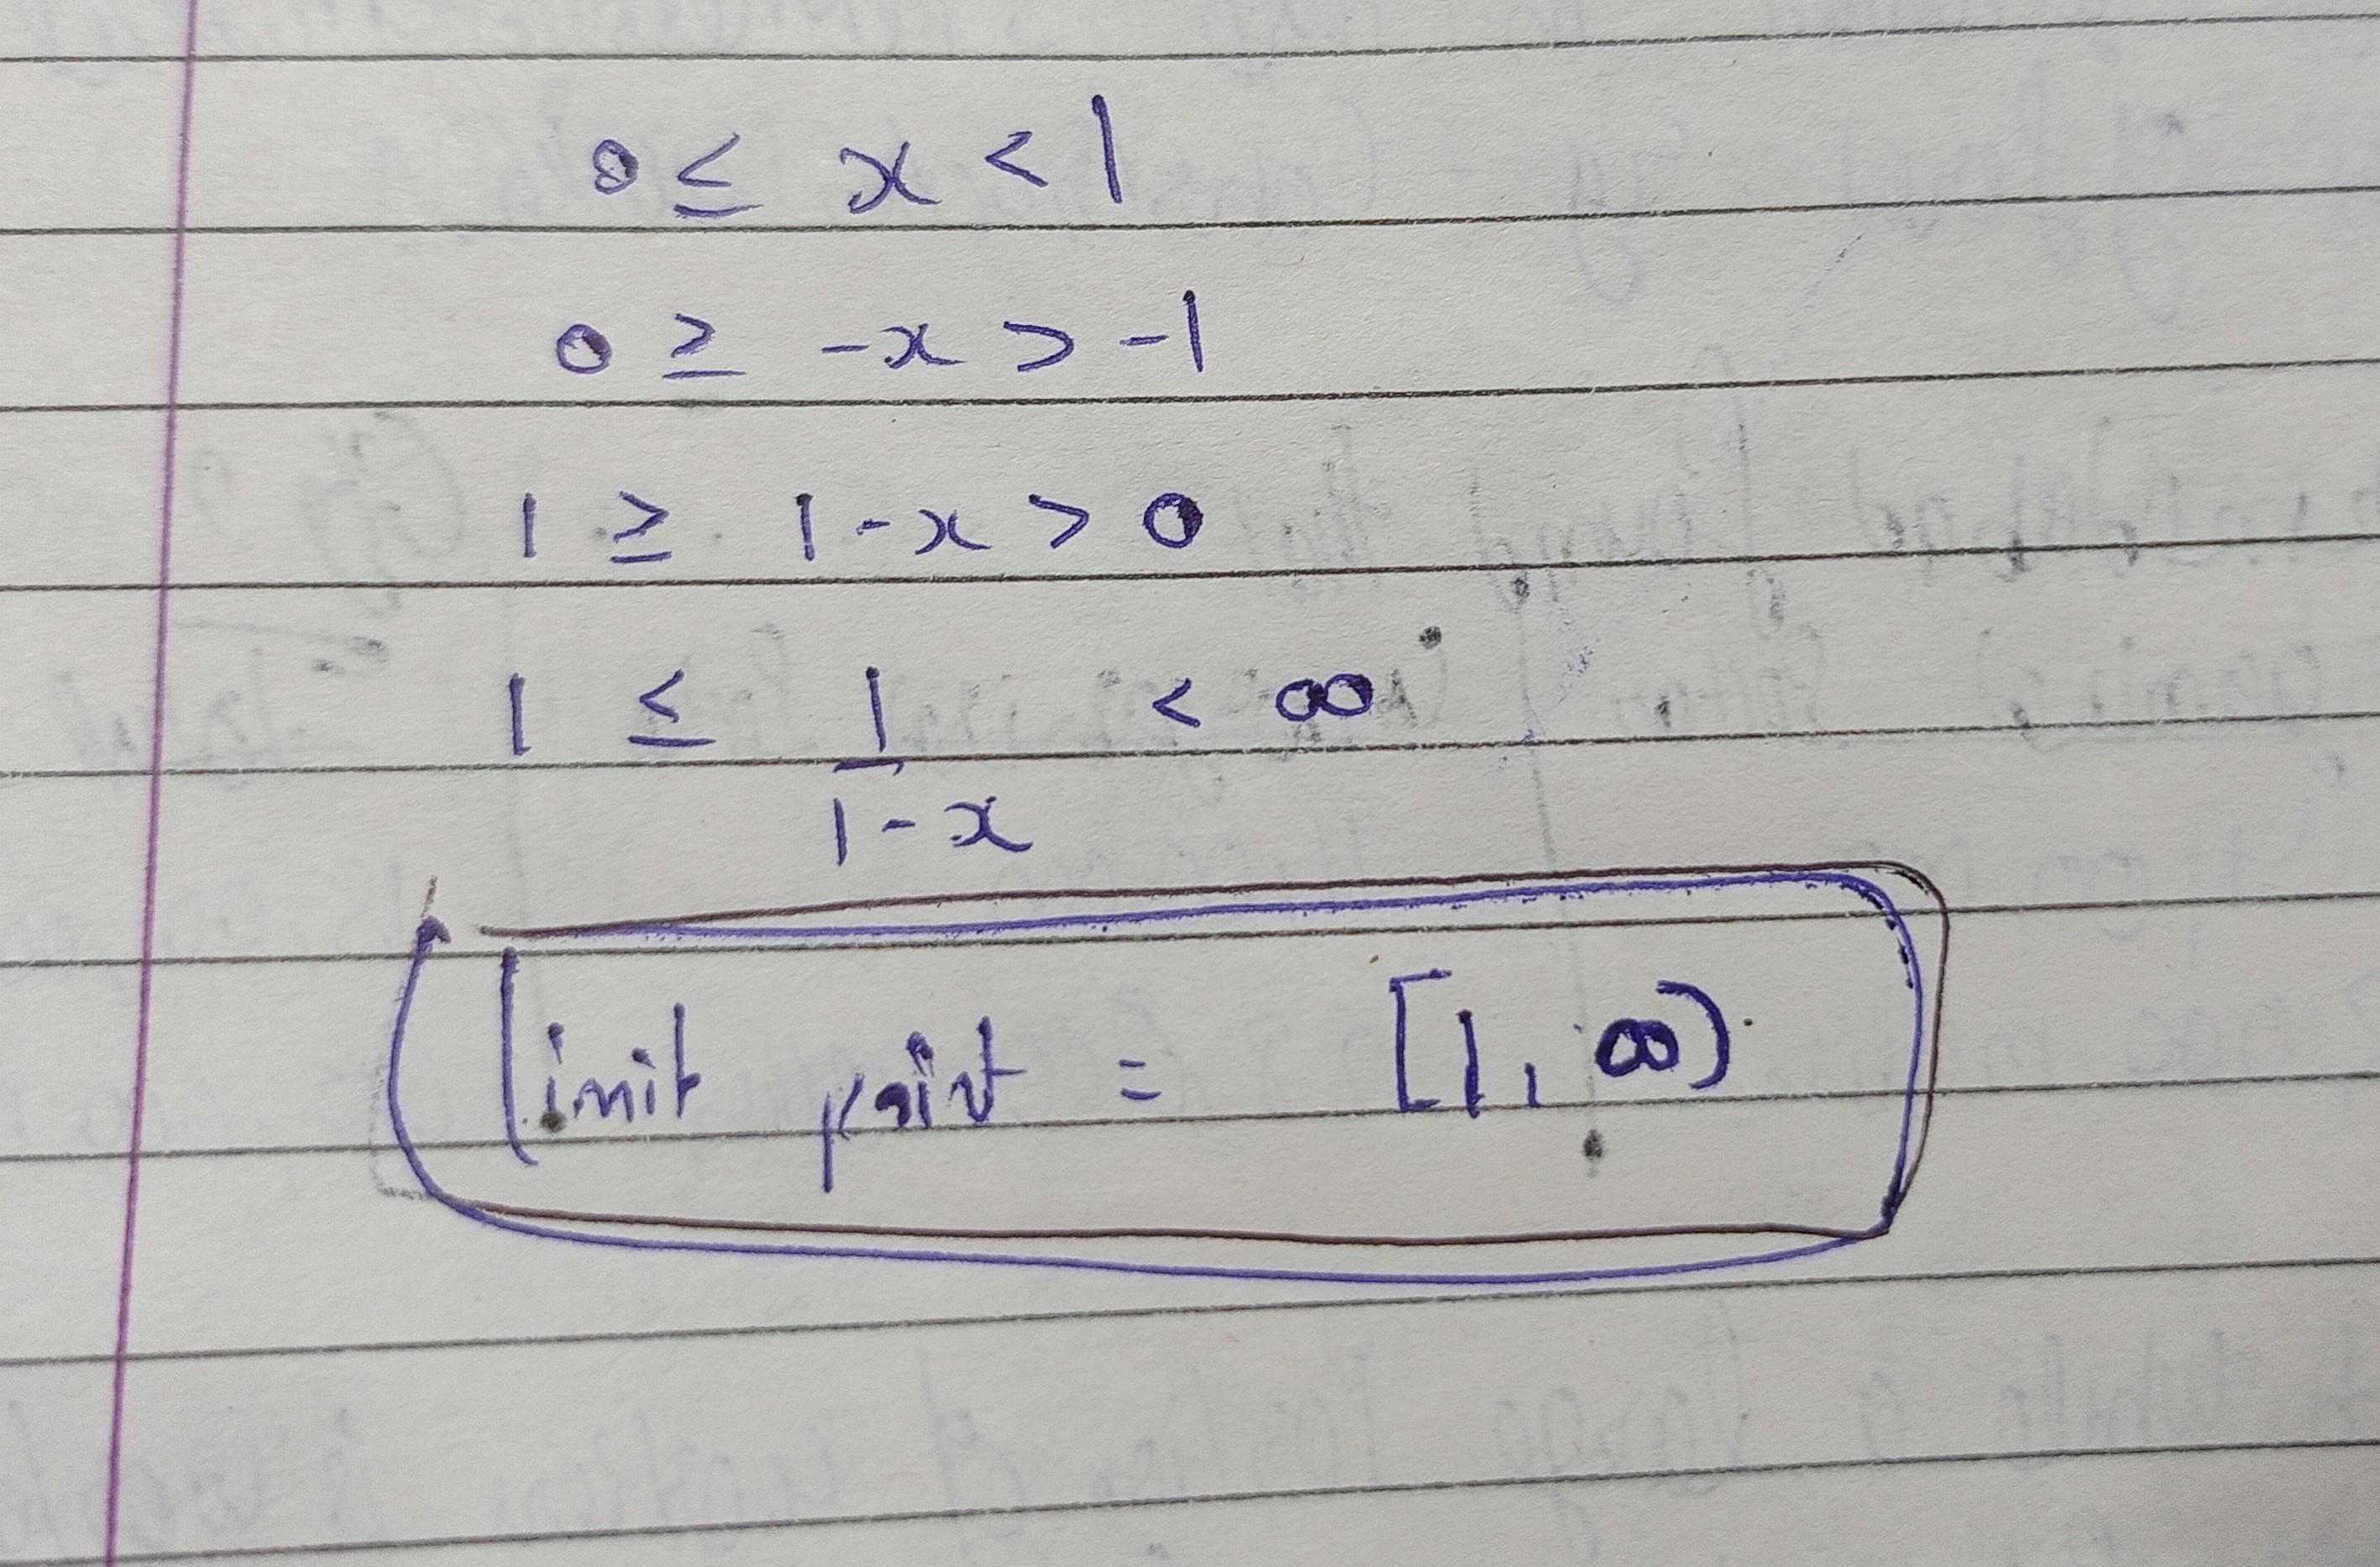 0 ≤ x < 1
0 ≥ -x > -1
1 ≥ 1-x > 0
1 ≤ 1/(1-x) < ∞
limit point = [1, ∞)